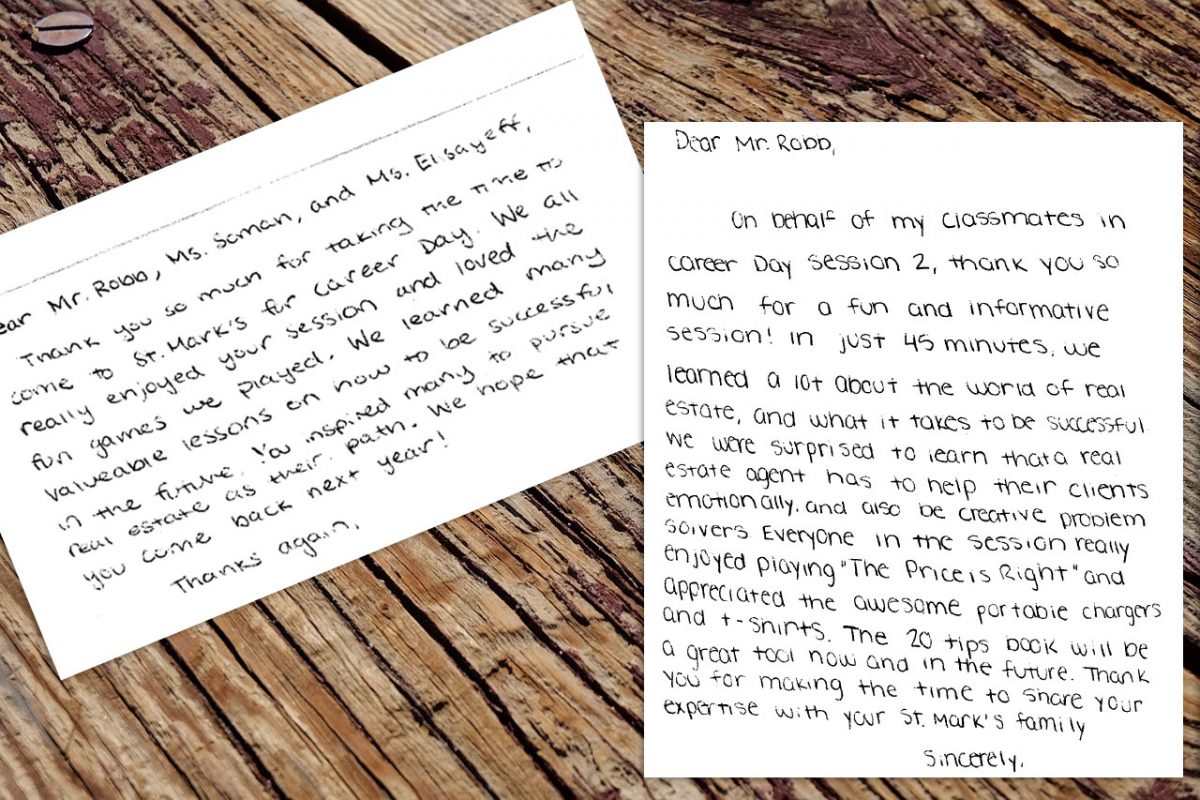 ear Mr. Robb, Ms. Soman, and Ms. Elsayeff,
Thank you so much for taking the time to
come to St. Mark's for Career Day. We all
really enjoyed your session and loved the
fun games we played. We learned many
valueable lessons on how to be successful
in the future. You inspired many to pursue
real estate as their path. We hope that
you come back next year!
Thanks again,
Dear Mr. Robb,
On behalf of my classmates in
career Day session 2, thank you so
much for a fun and informative
session! In just 45 minutes, we
learned a lot about the world of real
estate, and what it takes to be successful.
We were surprised to learn that a real
estate agent has to help their clients
emotionally, and also be creative problem
solvers Everyone in the session really
enjoyed playing "The Price is Right" and
appreciated the awesome portable chargers
and t-shirts. The 20 tips book will be
a great tool now and in the future. Thank
you for making the time to share your
expertise with your St. Mark's family
Sincerely,